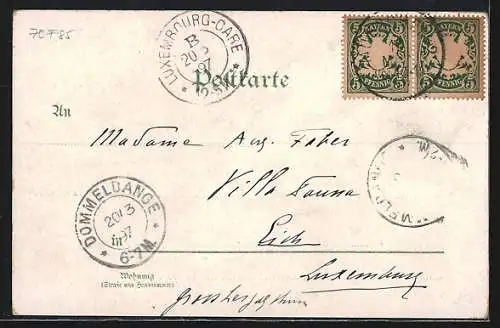 70785
LUXEMBOURG-GARE
B
20/3
97
12-5
BAYERN 5 5 PFENNIG
BAYERN 5 5 PFENNIG
Postkarte
An
Madame Aug. Faber
Villa Fauna
Eich
Luxemburg
Grossherzogthum
DOMMELDANGE
20/3
97
6-7M.
Wohnung
(Straße und Hausnummer)